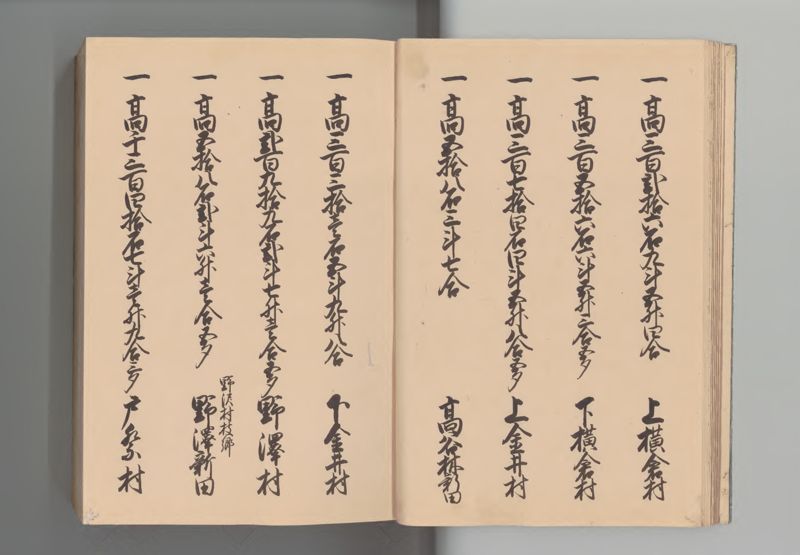 一 高三百弐拾六石九斗五升四合 上横倉村
一 高三百五拾六石六斗五升三合余 下横倉村
一 高三百七拾四石四斗五升八合余 上金井村
一 高五拾八石三斗七合 高谷林新田
一 高三百三拾壱石五斗九升八合 下金井村
一 高弐百九拾九石弐斗七升壱合余 野澤村
野沢村枝郷
一 高五拾八石弐斗六升壱合余 野澤新田
一 高千三百四拾石七斗壱升九合余 戸祭村